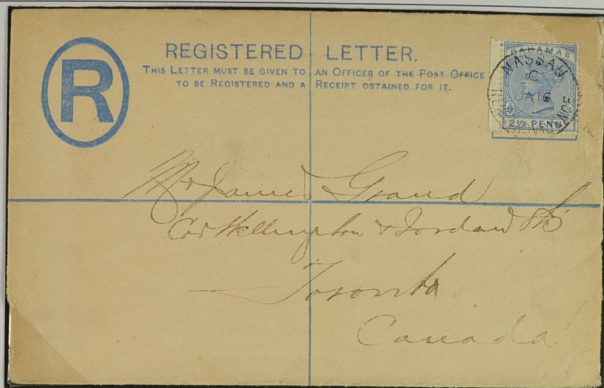 R
REGISTERED LETTER.
THIS LETTER MUST BE GIVEN TO AN OFFICER OF THE POST OFFICE
TO BE REGISTERED AND A RECEIPT OBTAINED FOR IT.
BAHAMAS
NASSAU
C
JA 16
NEW PROVIDENCE
2½ PENNY
Mr James Grand
Cor Wellington & Jordan Sts
Toronto
Canada